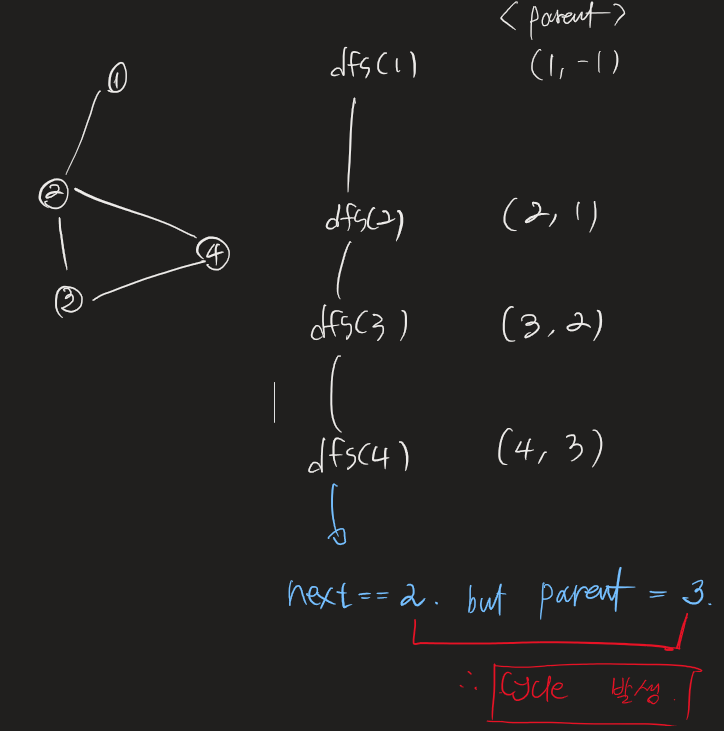 <parent>
①
dfs(1) (1, -1)
②
dfs(2) (2, 1)
④
③
dfs(3) (3, 2)
dfs(4) (4, 3)
next == 2. but parent = 3.
∴ Cycle 발생.